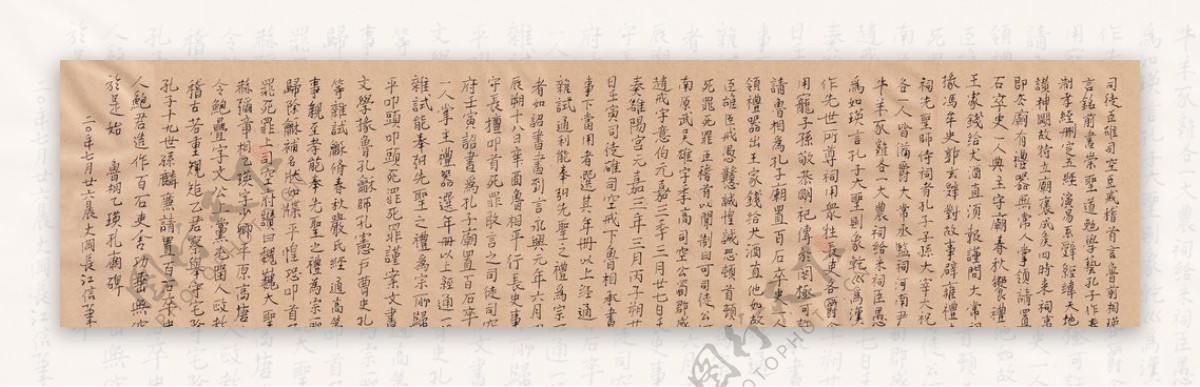 司徒臣雄司空臣戒稽首言魯前相瑛
言銘前書崇聖道勉學藝孔子作春
制孝經刪定五經演易系辭經緯天地
讚神明故特立廟褒成侯四時来祠事
即去廟有禮器無常人掌領請置
石卒史一人典主守廟春秋饗禮
王家錢給犬酒直須報謹問大常
掾馮牟史郭玄辭對故事辟雍禮
祠先聖師侍祠者孔子子孫大宰大祝
各一人皆備爵大常丞監祠河南尹
牛羊豕雞各一大農祠給米祠臣愚
為如瑛言孔子大聖則象乾巛為漢
作先世所尊祠用眾牲長吏各爵
用寵子孫敬恭明祀傳於罔極可許
請魯相為孔子廟置百石卒史一人
領禮器出王家錢給犬酒直他如故
臣雄臣戒愚戇誠惶誠恐頓首頓
死罪死罪臣稽首以聞制曰可司徒公
南原武吳雄字季高司空公蜀郡成
趙戒字意伯元嘉三年三月廿七日壬
奏雒陽宮元嘉三年三月丙子朔廿
日壬寅司徒雄司空戒下魯相承書
事下當用者選其年卌以上經通
雜試通利能奉弘先聖之禮為宗
者如詔書書到言永興元年六月
辰朔十八日辛酉魯相平行長史事
守長擅叩首死罪敢言之司徒司空
府壬寅詔書為孔子廟置百石卒
一人掌主禮器選年卌以上經通一
雜試能奉弘先聖之禮為宗所歸
平叩頭叩頭死罪死罪謹案文書
文學掾魯孔龢師孔憲戶曹史孔
等雜試龢脩春秋嚴氏經通高第
事親至孝能奉先聖之禮為宗所
歸除龢補名狀如牒平惶恐叩首
罪死罪上司空府讚曰巍巍大聖
赫彌章相乙瑛字少卿平原高唐
令鮑疊字文公上黨屯留人政教
稽古若重規矩乙君察舉守宅除
孔子十九世孫麟廉請置百石卒史
人鮑君造作百石吏舍功垂無窮
於是始　魯相乙瑛孔廟碑
二〇年七月廿六晨大閣長江信筆